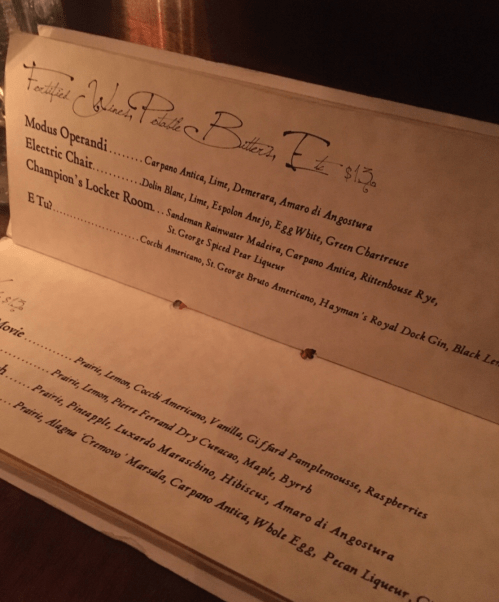 Fortified Wines, Potable Bitters, Etc $13
Modus Operandi ........ Carpano Antica, Lime, Demerara, Amaro di Angostura
Electric Chair ............ Dolin Blanc, Lime, Espolon Anejo, Egg White, Green Chartreuse
Champion's Locker Room ... Sandeman Rainwater Madeira, Carpano Antica, Rittenhouse Rye,
St. George Spiced Pear Liqueur
E Tu? ........................ Cocchi Americano, St. George Bruto Americano, Hayman's Royal Dock Gin, Black
$13
Movie ............ Prairie, Lemon, Cocchi Americano, Vanilla, Giffard Pamplemousse, Raspberries
............ Prairie, Lemon, Pierre Ferrand Dry Curacao, Maple, Byrrh
...... Prairie, Pineapple, Luxardo Maraschino, Hibiscus, Amaro di Angostura
.... Prairie, Alagna 'Cremovo' Marsala, Carpano Antica, Whole Egg, Pecan Liqueur,